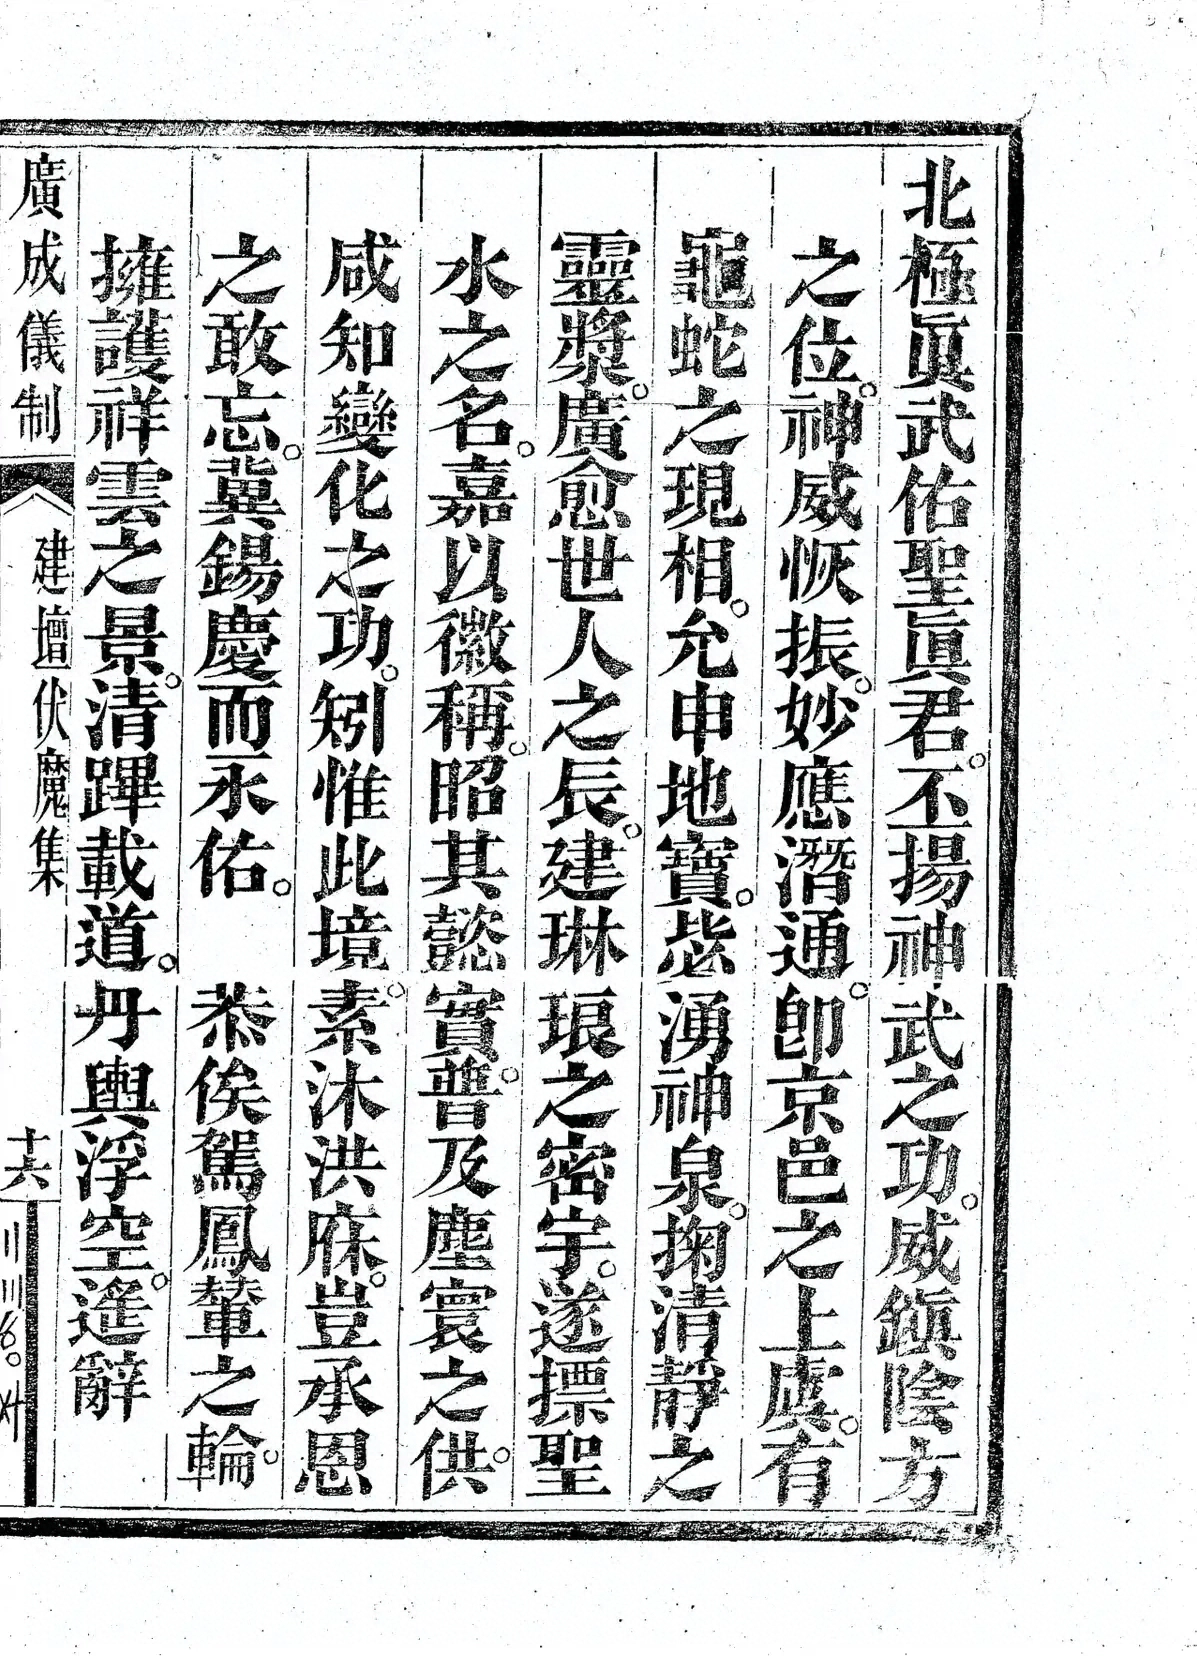 北極眞武佑聖眞君。不揚神武之功。威鎮陰方
之位。神威恢振。妙應潛通。卽京邑之上虞。有
龜蛇之現相。允申地寶。毖湧神泉。掬清靜之
靈漿。廣愈世人之辰。建琳琅之密宇。遂摽聖
水之名。嘉以徽稱。昭其懿實。普及塵寰之供。
咸知變化之功。矧惟此境。素沐洪庥。豈承恩
之敢忘。冀錫慶而永佑。 恭俟駕鳳輦之輪。
擁護祥雲之景。清蹕載道。丹輿浮空。遙辭
廣成儀制 建壇伏魔集 十六